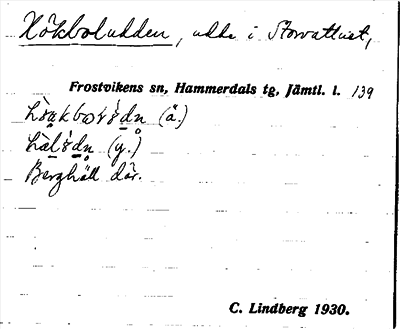 Hökboludden, udde i Storvattnet,
Frostvikens sn, Hammerdals tg, Jämtl. l. 139
(ä.)
(y.)
Berghäll där.
C. Lindberg 1930.